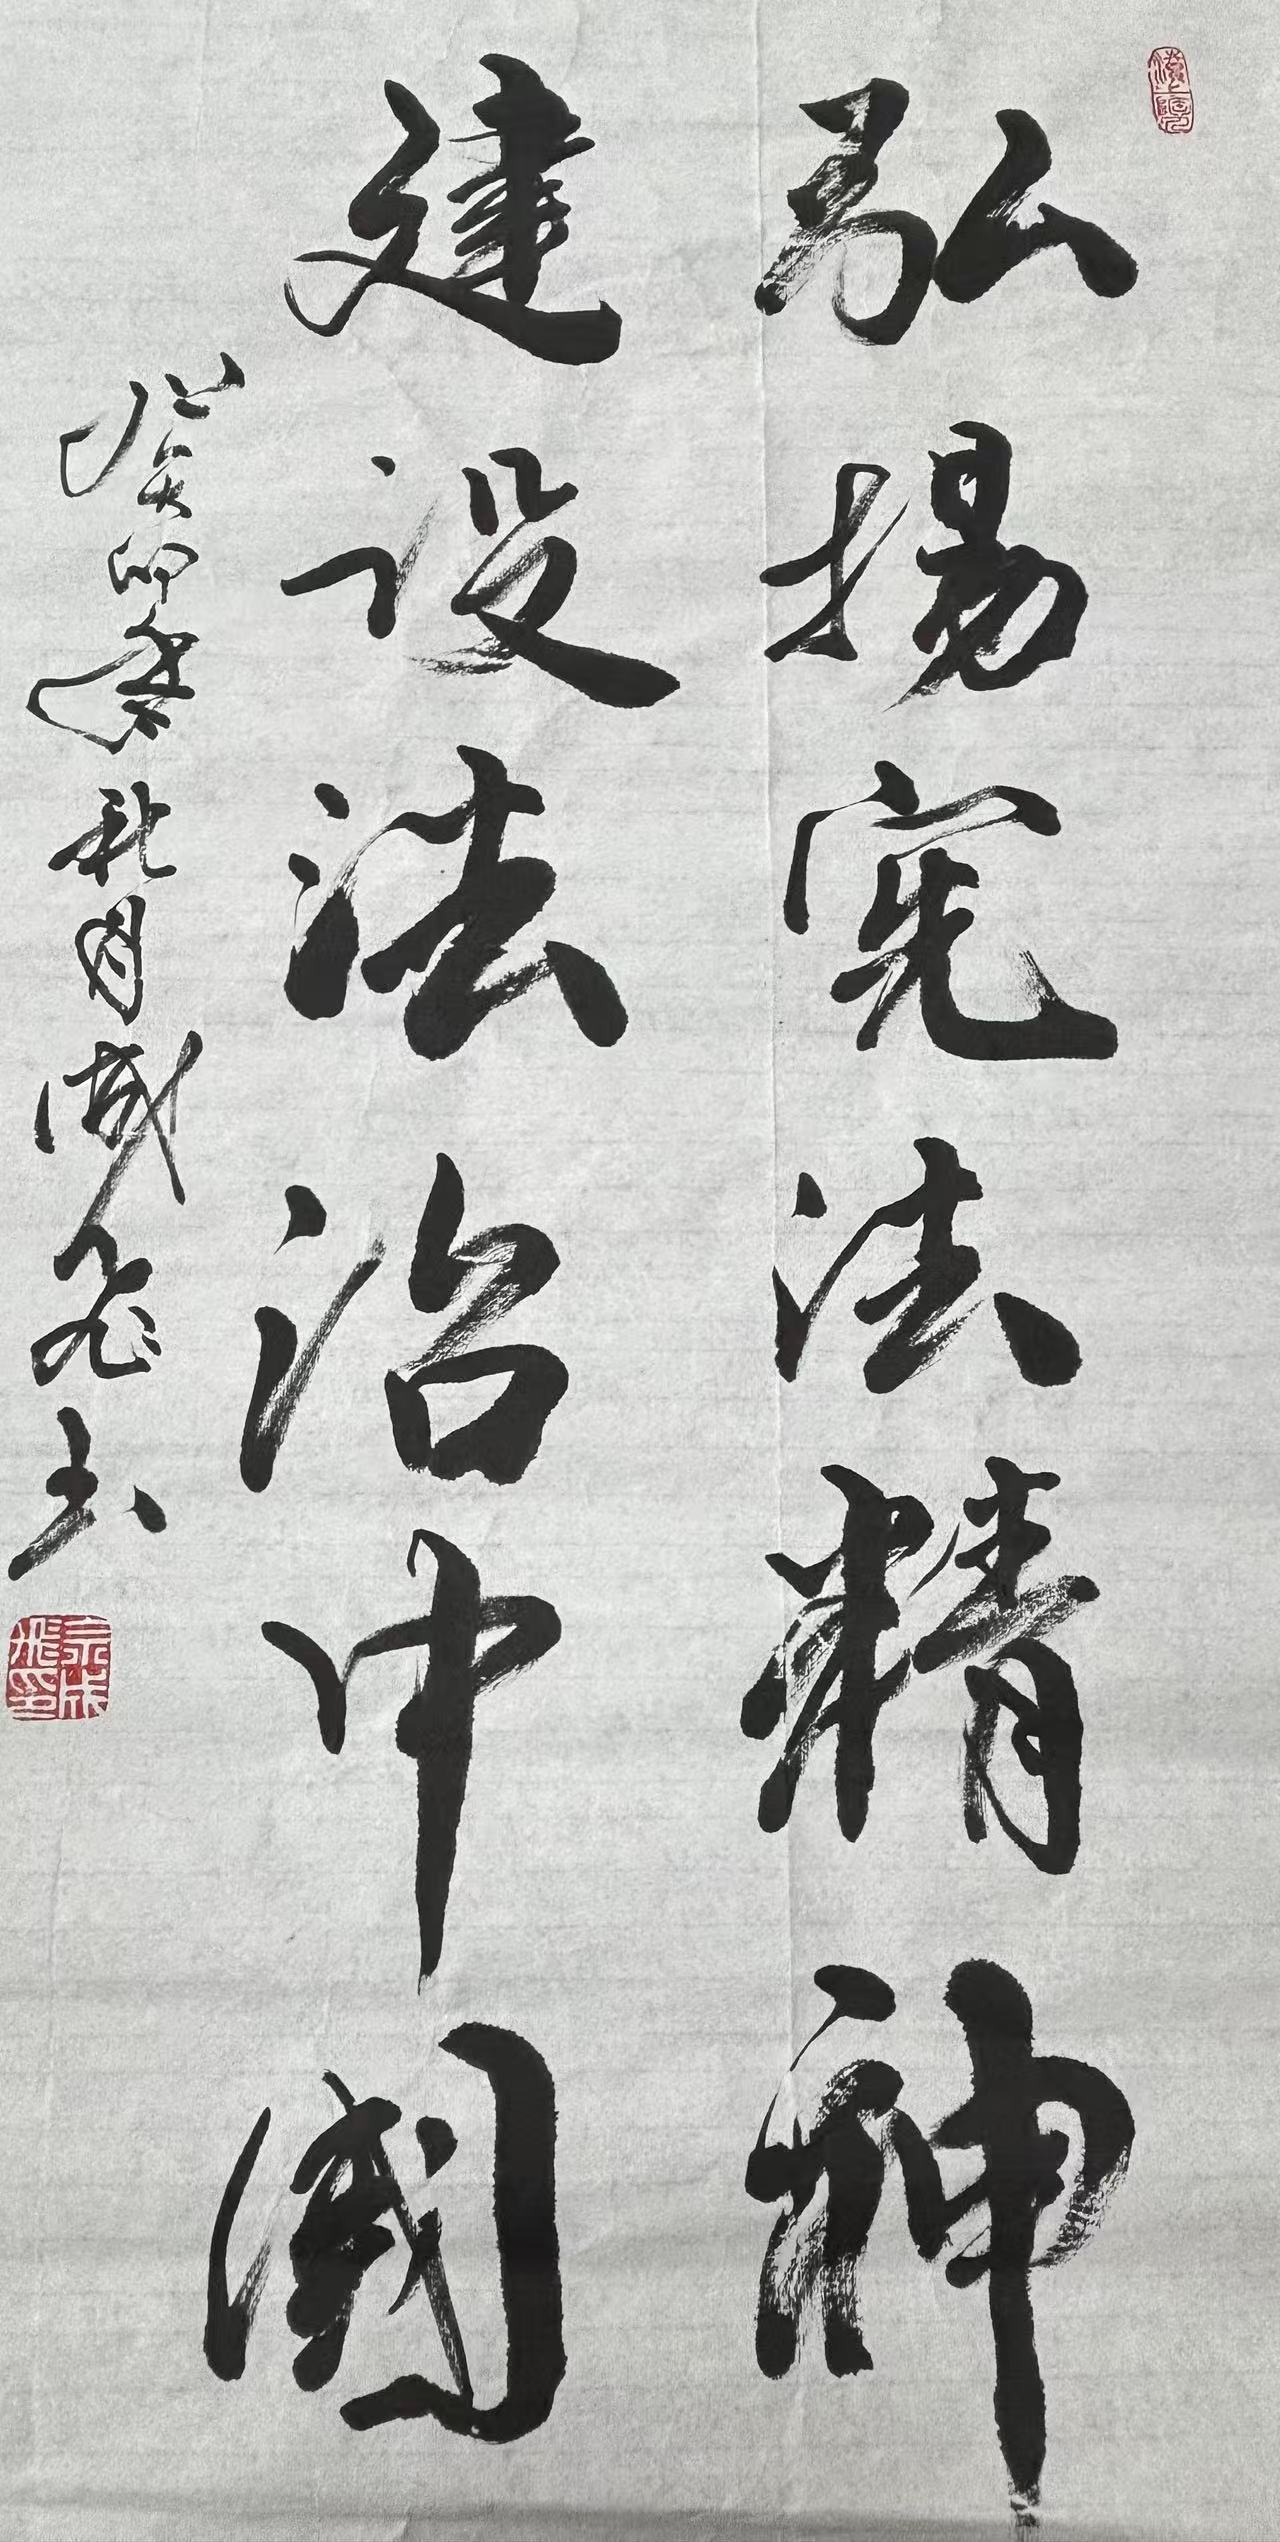 弘揚宪法精神
建设法治中國
癸卯年秋月成飞书